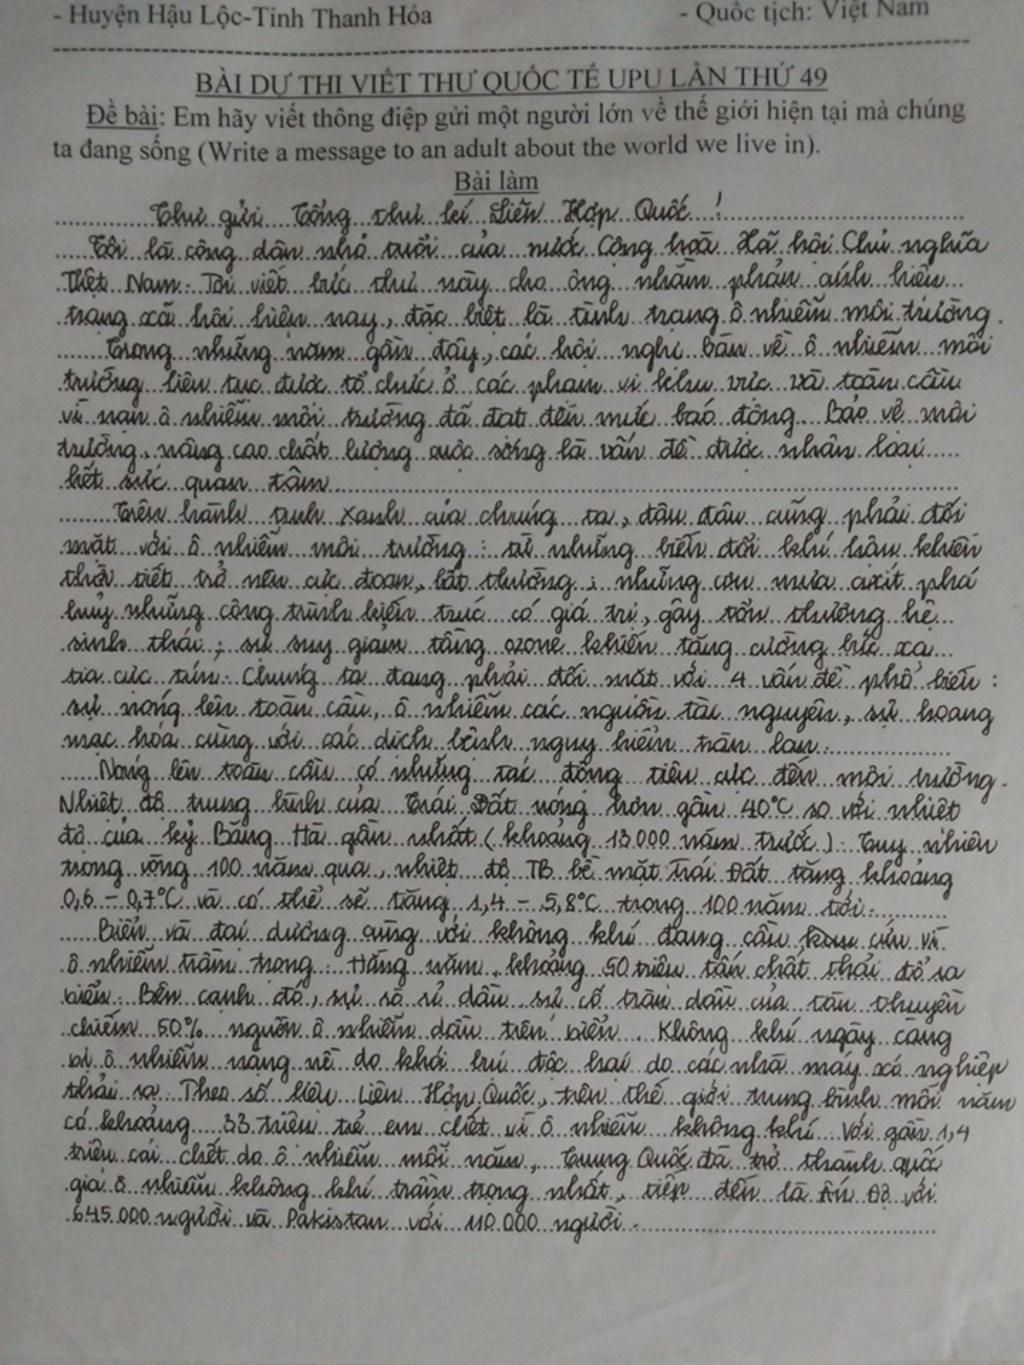 - Huyện Hậu Lộc-Tỉnh Thanh Hóa - Quốc tịch: Việt Nam
BÀI DỰ THI VIẾT THƯ QUỐC TẾ UPU LẦN THỨ 49
Đề bài: Em hãy viết thông điệp gửi một người lớn về thế giới hiện tại mà chúng
ta đang sống (Write a message to an adult about the world we live in).
Bài làm
Thư gửi Tổng thư kí Liên Hợp Quốc !
Tôi là công dân nhỏ tuổi của nước Cộng hoà Xã hội Chủ nghĩa
Việt Nam. Tôi viết bức thư này cho ông nhằm phản ánh hiện
trạng xã hội hiện nay, đặc biệt là tình trạng ô nhiễm môi trường.
Trong những năm gần đây, các hội nghị bàn về ô nhiễm môi
trường liên tục được tổ chức ở các phạm vi khu vực và toàn cầu
vì nạn ô nhiễm môi trường đã đạt đến mức báo động. Bảo vệ môi
trường, nâng cao chất lượng cuộc sống là vấn đề được nhân loại
hết sức quan tâm.
Trên hành tinh xanh của chúng ta, đâu đâu cũng phải đối
mặt với ô nhiễm môi trường : từ những biến đổi khí hậu khiến
thời tiết trở nên cực đoan, bất thường ; những cơn mưa axit phá
huỷ những công trình kiến trúc có giá trị, gây tổn thương hệ
sinh thái ; sự suy giảm tầng ozone khiến tăng cường bức xạ
tia cực tím. Chúng ta đang phải đối mặt với 4 vấn đề phổ biến :
sự nóng lên toàn cầu, ô nhiễm các nguồn tài nguyên, sự hoang
mạc hóa cùng với các dịch bệnh nguy hiểm tràn lan.
Nóng lên toàn cầu có những tác động tiêu cực đến môi trường.
Nhiệt độ trung bình của Trái Đất nóng hơn gần 40°C so với nhiệt
độ của kỷ Băng Hà gần nhất ( khoảng 13.000 năm trước ). Tuy nhiên
trong vòng 100 năm qua, nhiệt độ TB bề mặt Trái Đất tăng khoảng
0,6 - 0,7°C và có thể sẽ tăng 1,4 - 5,8°C trong 100 năm tới.
Biển và đại dương cùng với không khí đang cầu cứu vì
ô nhiễm trầm trọng. Hằng năm, khoảng 50 triệu tấn chất thải đổ ra
biển. Bên cạnh đó, sự rò rỉ dầu, sự cố tràn dầu của tàu thuyền
chiếm 50% nguồn ô nhiễm dầu trên biển. Không khí ngày càng
bị ô nhiễm nặng nề do khói bụi độc hại do các nhà máy xí nghiệp
thải ra. Theo số liệu Liên Hợp Quốc, trên thế giới trung bình mỗi năm
có khoảng 33 triệu trẻ em chết vì ô nhiễm không khí. Với gần 1,4
triệu cái chết do ô nhiễm mỗi năm, Trung Quốc đã trở thành quốc
gia ô nhiễm không khí trầm trọng nhất, tiếp đến là Ấn Độ với
645.000 người và Pakistan với 110.000 người.